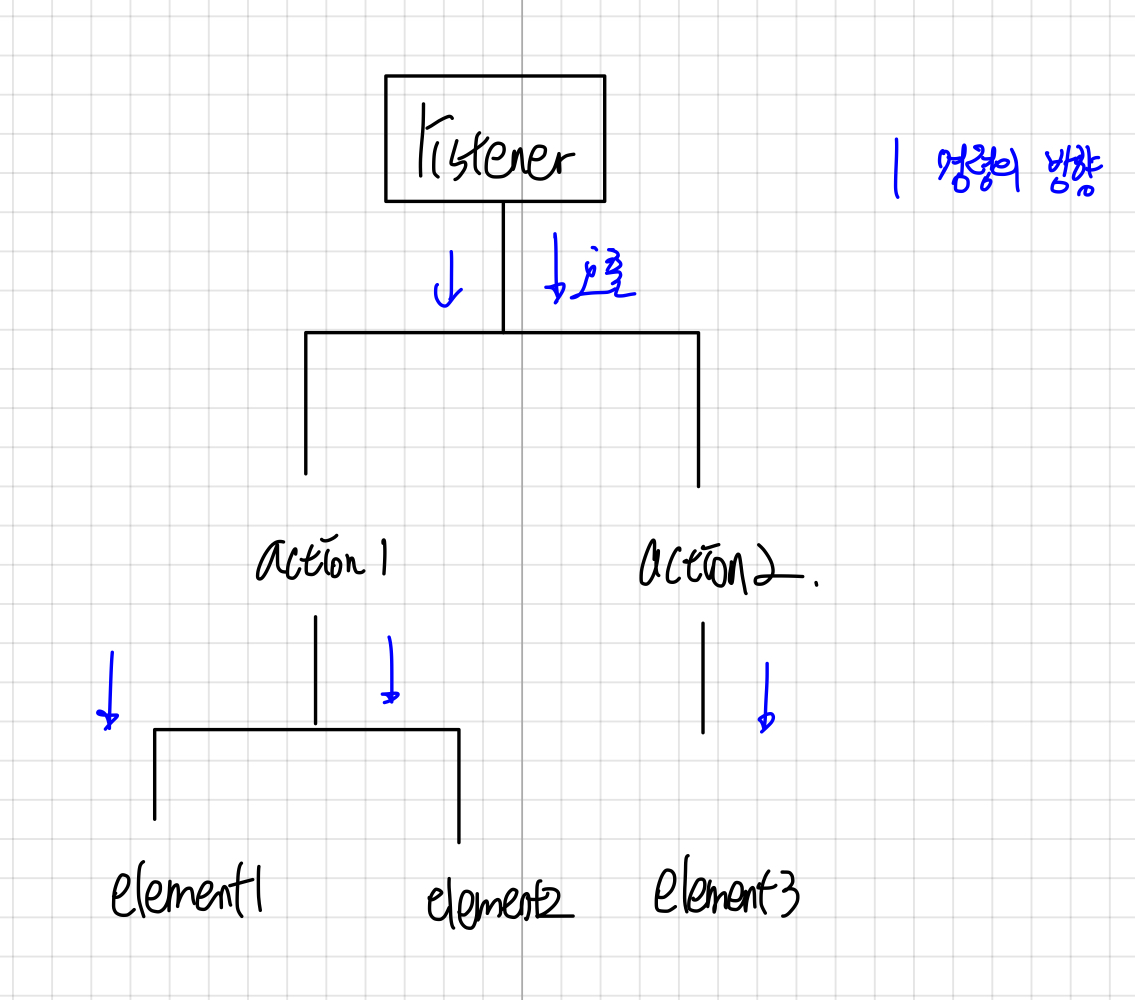 listener
| 명령의 방향
action1
action2.
element1
element2
element3